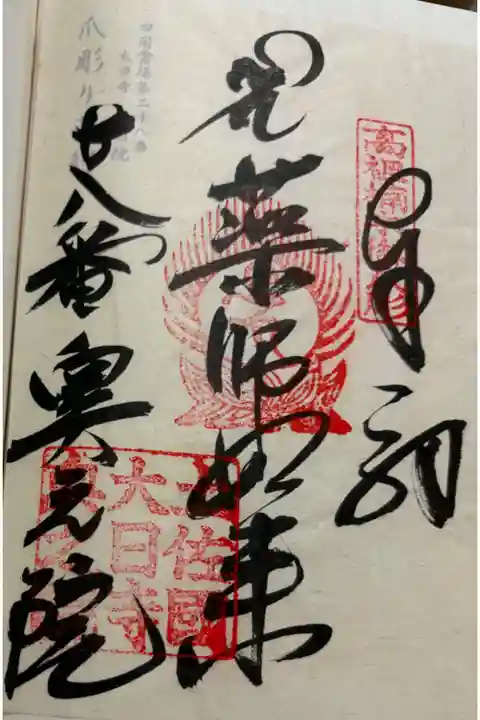 奉納
薬師如来
廿八番奥之院
土佐國
大日寺
奥之院
四国霊場第二十八番
大日寺
院
爪彫り